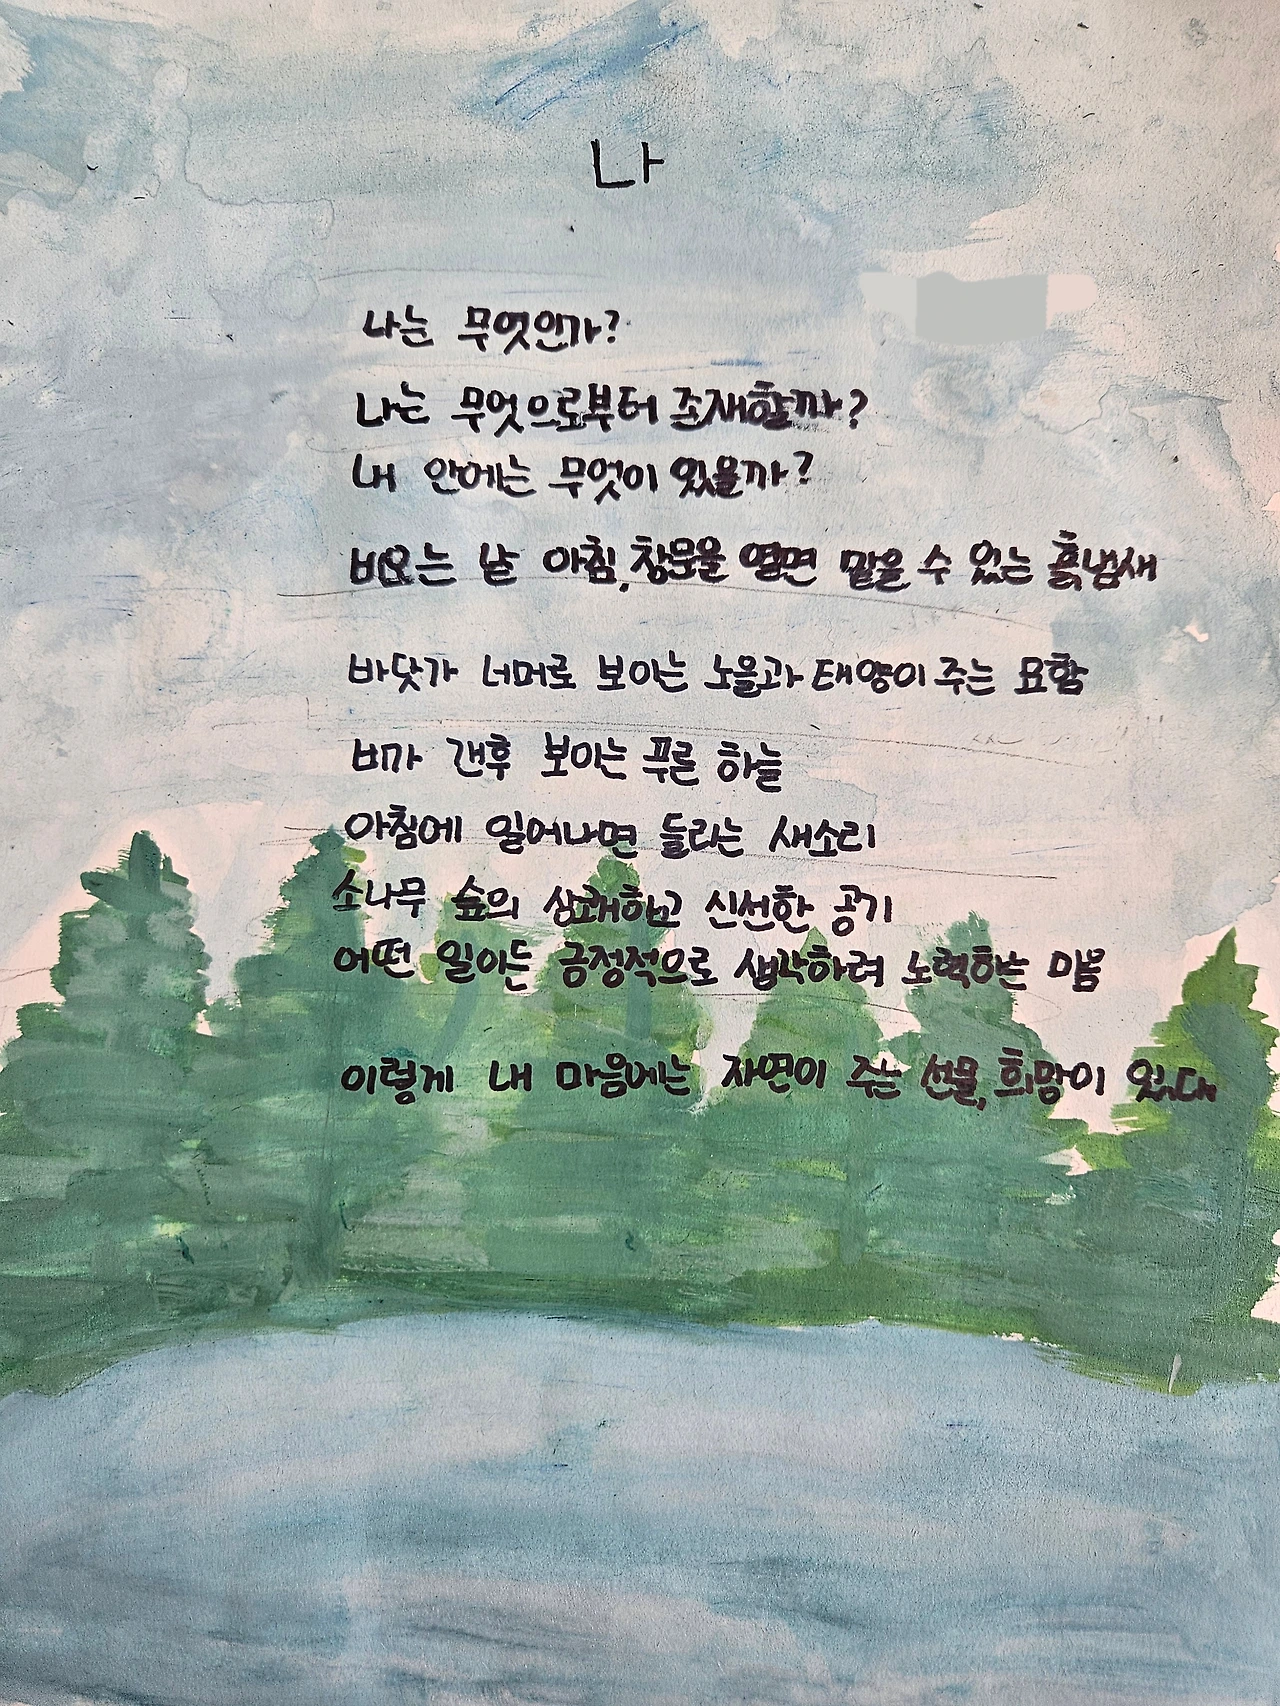 나
나는 무엇인가?
나는 무엇으로부터 존재할까?
내 안에는 무엇이 있을까?
비오는 날 아침, 창문을 열면 맡을 수 있는 흙냄새
바닷가 너머로 보이는 노을과 태양이 주는 묘함
비가 갠후 보이는 푸른 하늘
아침에 일어나면 들리는 새소리
소나무 숲의 상쾌하고 신선한 공기
어떤 일이든 긍정적으로 생각하려 노력하는 마음
이렇게 내 마음에는 자연이 주는 선물, 희망이 있다